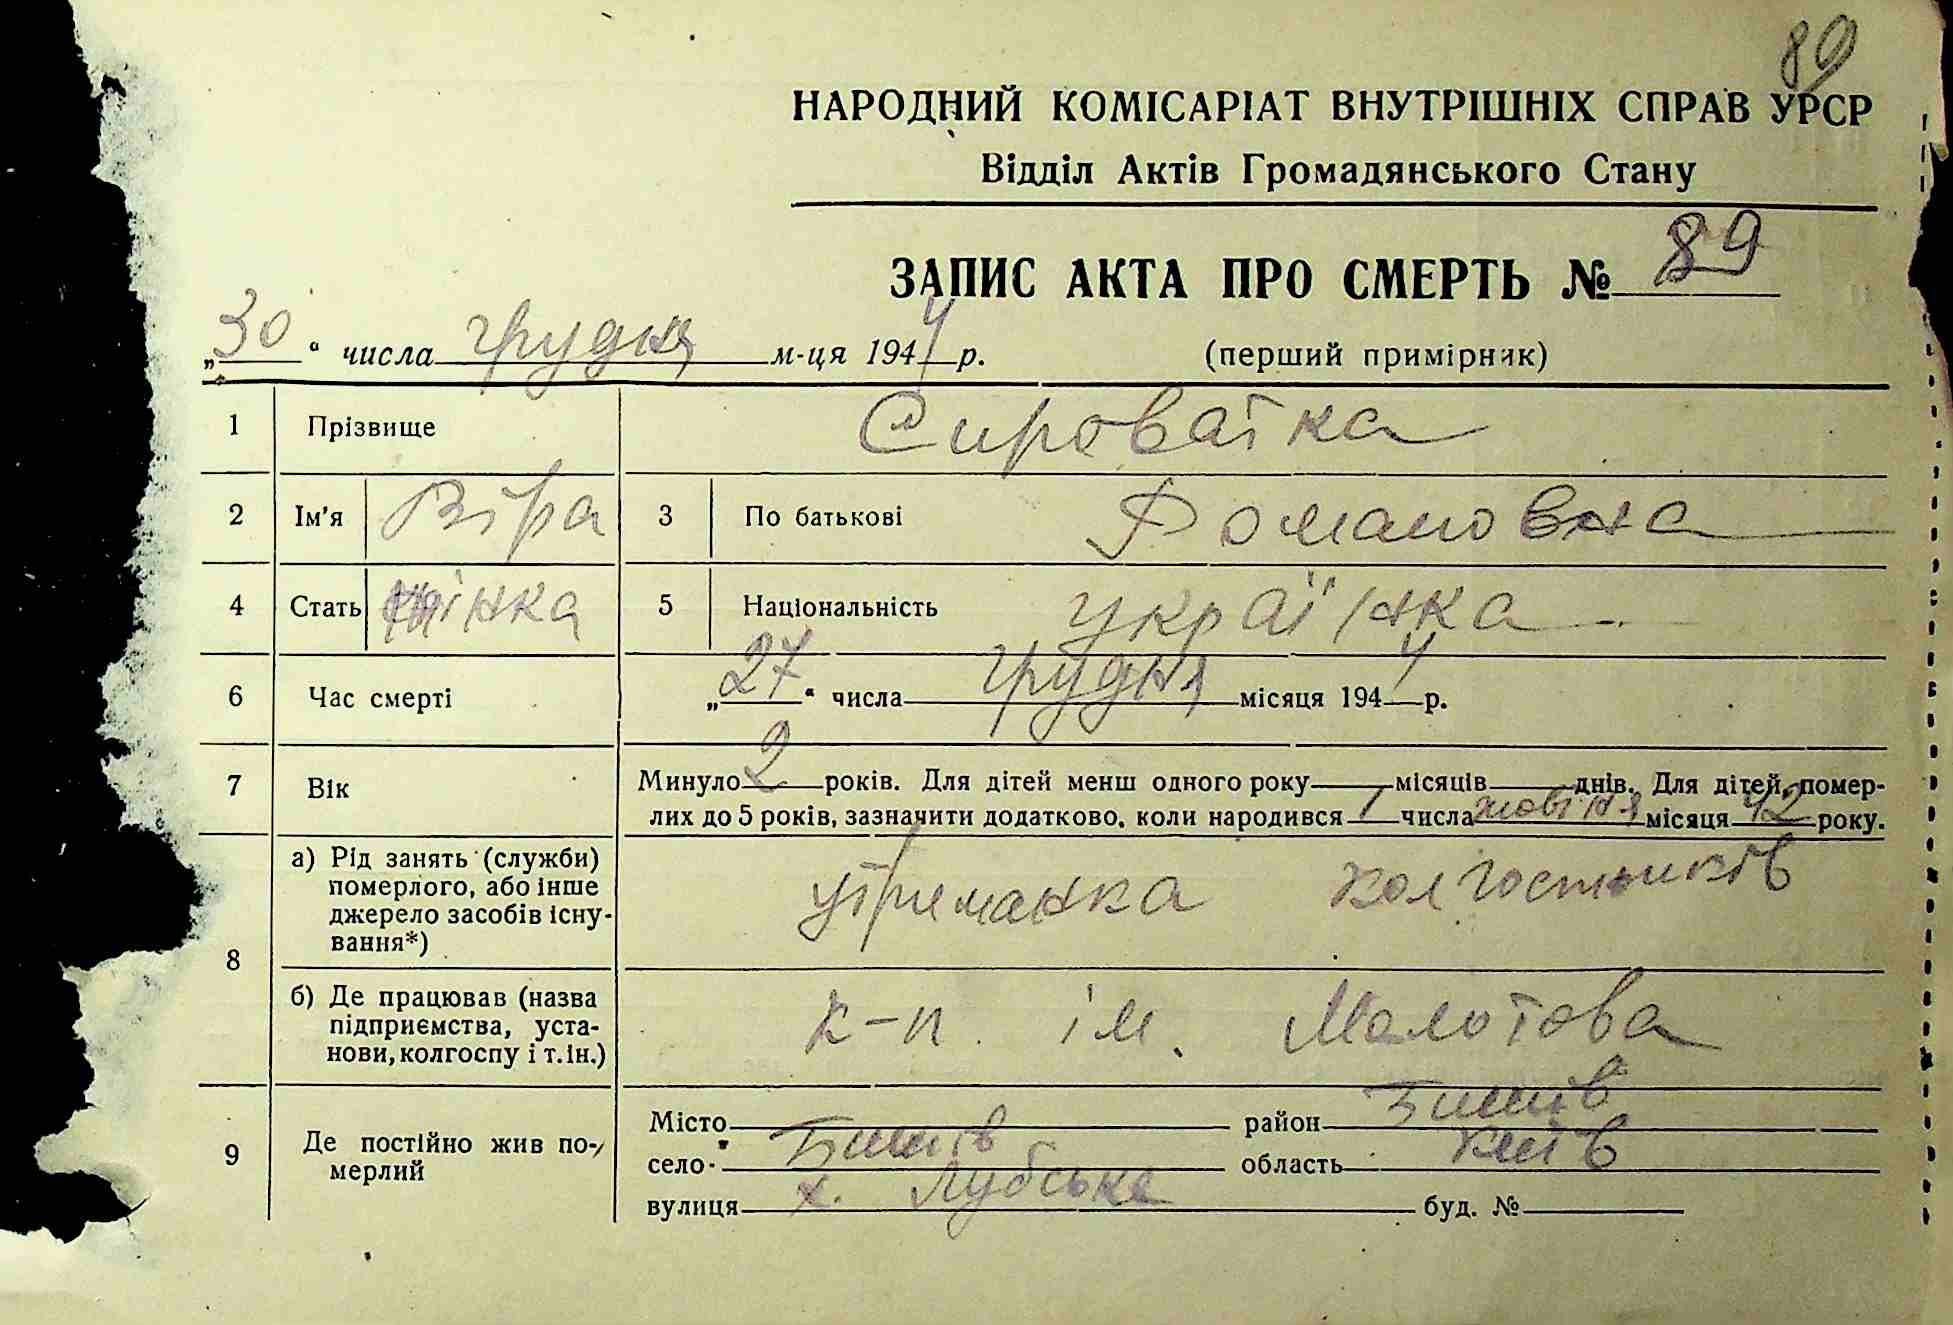 89
НАРОДНИЙ КОМІСАРІАТ ВНУТРІШНІХ СПРАВ УРСР
Відділ Актів Громадянського Стану
ЗАПИС АКТА ПРО СМЕРТЬ № 89
„30“ числа грудня м-ця 1944 р. (перший примірник)
1 Прізвище Сироватка
2 Ім'я Віра 3 По батькові Романовна
4 Стать жінка 5 Національність українка
6 Час смерті „27“ числа грудня місяця 1944 р.
7 Вік Минуло 2 років. Для дітей менш одного року місяців днів. Для дітей, помер-
лих до 5 років, зазначити додатково, коли народився 1 числа жовтня місяця 42 року.
8 а) Рід занять (служби)
померлого, або інше
джерело засобів існу-
вання*) утриманка колгоспників
б) Де працював (назва
підприємства, уста-
нови, колгоспу і т.ін.) к-п ім. Молотова
9 Де постійно жив по-
мерлий
Місто район Бишів
село Бишів область Київ
вулиця х. Лубське буд. №